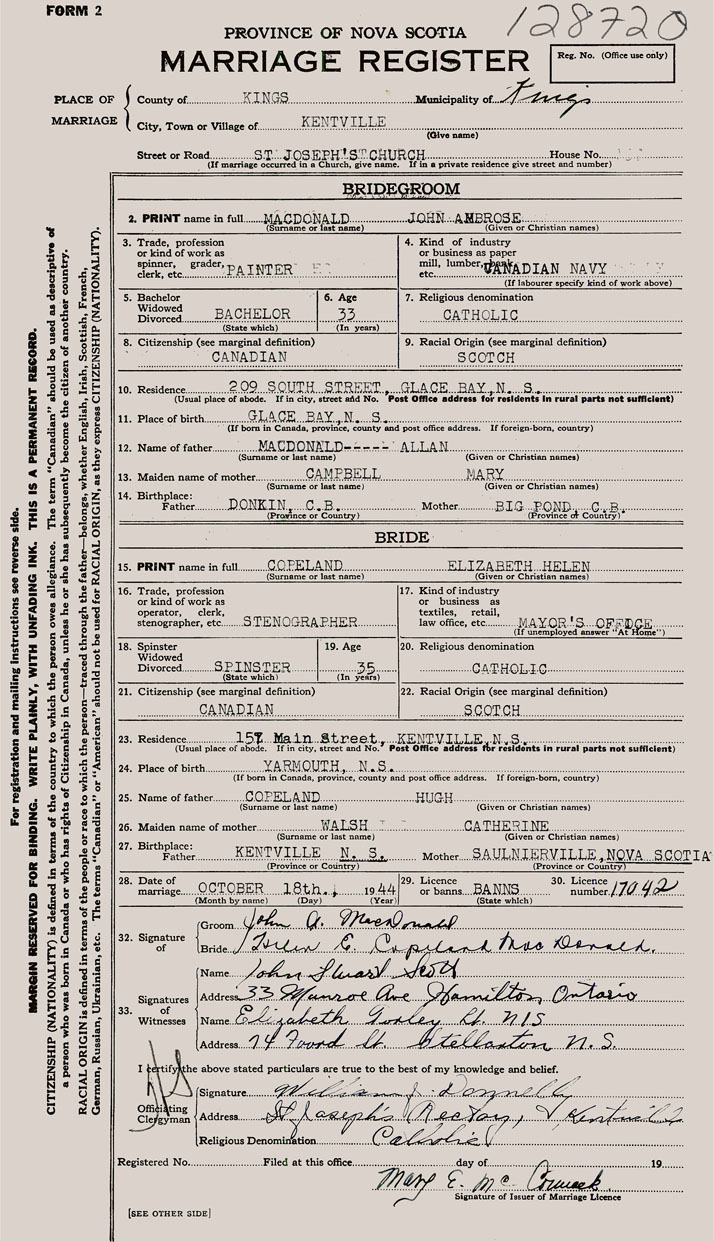 FORM 2
128720
PROVINCE OF NOVA SCOTIA
MARRIAGE REGISTER
Reg. No. (Office use only)
PLACE OF MARRIAGE
County of KINGS Municipality of Kings
City, Town or Village of KENTVILLE
(Give name)
Street or Road ST. JOSEPH'S CHURCH House No.
(If marriage occurred in a Church, give name. If in a private residence give street and number)
BRIDEGROOM
2. PRINT name in full MACDONALD JOHN AMBROSE
(Surname or last name) (Given or Christian names)
3. Trade, profession or kind of work as spinner, grader, clerk, etc. PAINTER
4. Kind of industry or business as paper mill, lumber, bank, etc. CANADIAN NAVY
(If labourer specify kind of work above)
5. Bachelor Widowed Divorced BACHELOR
(State which)
6. Age 33
(In years)
7. Religious denomination
CATHOLIC
8. Citizenship (see marginal definition)
CANADIAN
9. Racial Origin (see marginal definition)
SCOTCH
10. Residence 209 SOUTH STREET, GLACE BAY, N. S.
(Usual place of abode. If in city, street and No. Post Office address for residents in rural parts not sufficient)
11. Place of birth GLACE BAY, N. S.
(If born in Canada, province, county and post office address. If foreign-born, country)
12. Name of father MACDONALD----- ALLAN
(Surname or last name) (Given or Christian names)
13. Maiden name of mother CAMPBELL MARY
(Surname or last name) (Given or Christian names)
14. Birthplace:
Father DONKIN, C.B. Mother BIG POND, C.B.
(Province or Country) (Province or Country)
BRIDE
15. PRINT name in full COPELAND ELIZABETH HELEN
(Surname or last name) (Given or Christian names)
16. Trade, profession or kind of work as operator, clerk, stenographer, etc. STENOGRAPHER
17. Kind of industry or business as textiles, retail, law office, etc. MAYOR'S OFFDCE
(If unemployed answer "At Home")
18. Spinster Widowed Divorced SPINSTER
(State which)
19. Age 35
(In years)
20. Religious denomination
CATHOLIC
21. Citizenship (see marginal definition)
CANADIAN
22. Racial Origin (see marginal definition)
SCOTCH
23. Residence 157 Main Street, KENTVILLE, N.S.
(Usual place of abode. If in city, street and No. Post Office address for residents in rural parts not sufficient)
24. Place of birth YARMOUTH, N.S.
(If born in Canada, province, county and post office address. If foreign-born, country)
25. Name of father COPELAND HUGH
(Surname or last name) (Given or Christian names)
26. Maiden name of mother WALSH CATHERINE
(Surname or last name) (Given or Christian names)
27. Birthplace:
Father KENTVILLE N. S. Mother SAULNIERVILLE, NOVA SCOTIA
(Province or Country) (Province or Country)
28. Date of marriage OCTOBER 18th., 1944
(Month by name) (Day) (Year)
29. Licence or banns BANNS
(State which)
30. Licence number 17042
32. Signature of
Groom John A. MacDonald
Bride Helen E. Copeland MacDonald.
33. Signatures of Witnesses
Name John Stuart Scott
Address 33 Munroe Ave Hamilton, Ontario
Name Elizabeth Lt. N/S
Address 74 Foord St. Stellarton N. S.
I certify the above stated particulars are true to the best of my knowledge and belief.
Officiating Clergyman
Signature William J. Donnelly
Address St Joseph's Rectory, Kentville
Religious Denomination Catholic
Registered No. Filed at this office day of 19
Mary E. McCormack
Signature of Issuer of Marriage Licence
[SEE OTHER SIDE]
For registration and mailing instructions see reverse side.
MARGIN RESERVED FOR BINDING. WRITE PLAINLY, WITH UNFADING INK. THIS IS A PERMANENT RECORD.
CITIZENSHIP (NATIONALITY) is defined in terms of the country to which the person owes allegiance. The term "Canadian" should be used as descriptive of
a person who was born in Canada or who has rights of Citizenship in Canada, unless he or she has subsequently become the citizen of another country.
RACIAL ORIGIN is defined in terms of the people or race to which the person—traced through the father—belongs, whether English, Irish, Scottish, French,
German, Russian, Ukrainian, etc. The terms "Canadian" or "American" should not be used for RACIAL ORIGIN, as they express CITIZENSHIP (NATIONALITY).